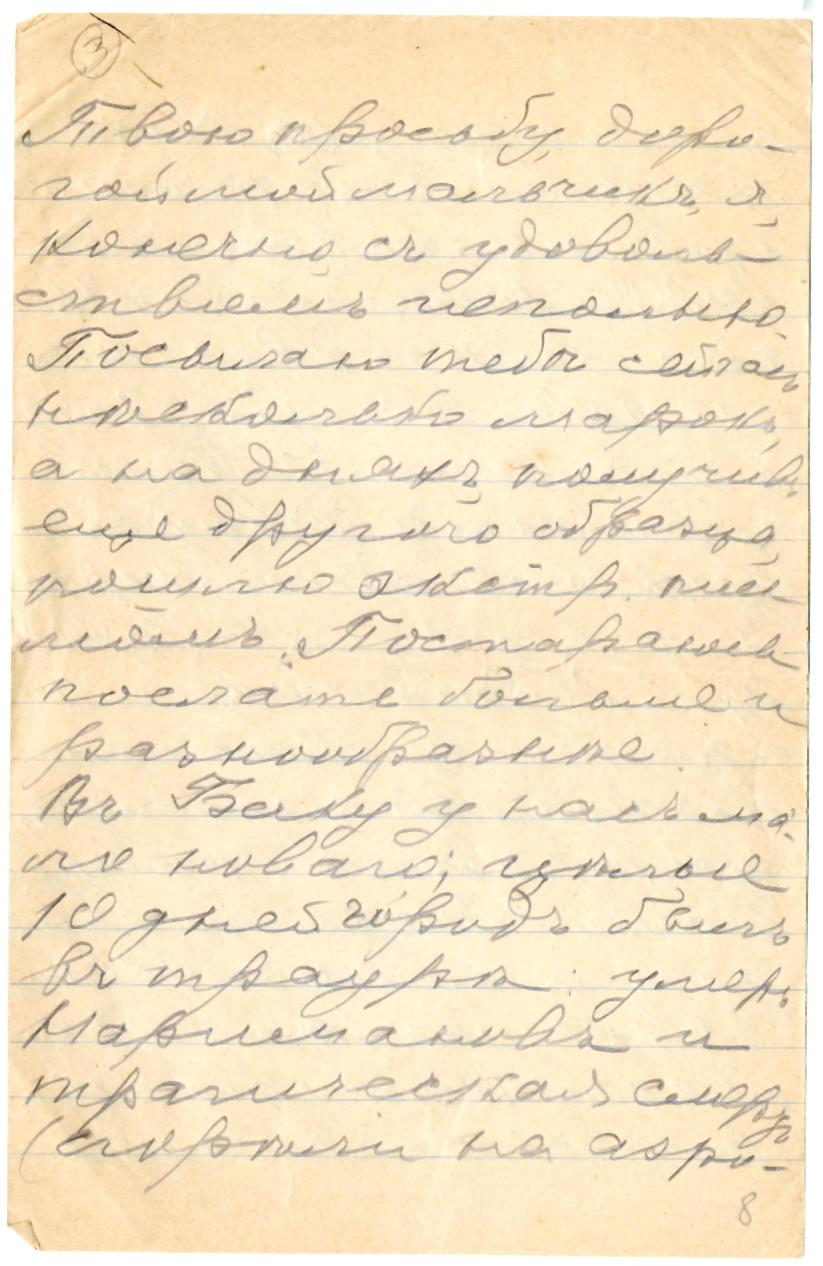 3
Твою просьбу, доро-
гой мой мальчикъ, я,
конечно, съ удоволь-
ствіемъ исполню.
Посылаю тебѣ сейчасъ
нѣсколько марокъ,
а на дняхъ, получивъ
еще другого образца,
пошлю экстр. пись-
момъ. Постараюсь
послать больше и
разнообразнѣе.
Въ Баку у насъ ма-
ло новаго; цѣлые
10 дней городъ былъ
въ траурѣ: умеръ
Наримановъ и
трагическая смерть
(сгорѣли на аэро-
8